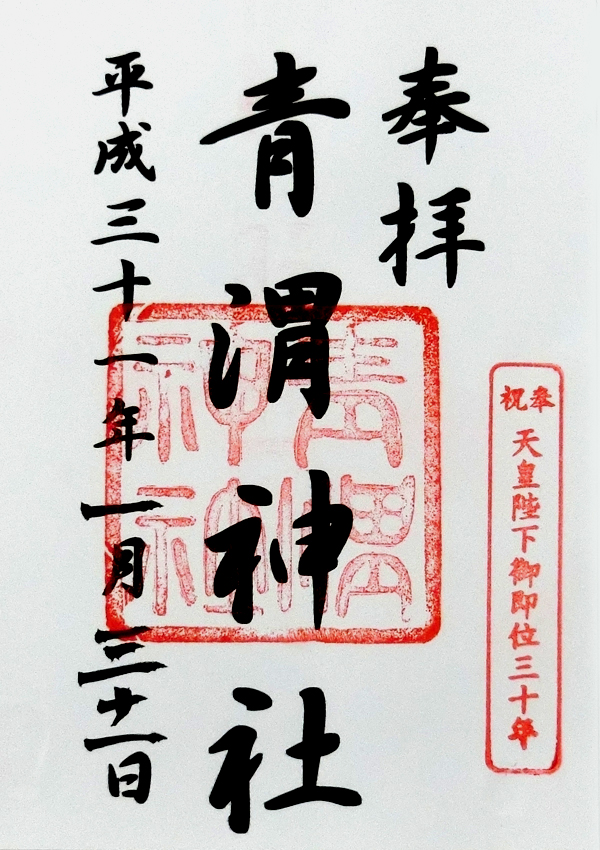 奉祝 天皇陛下御即位三十年
奉拝
青渭神社
平成三十一年一月三十一日
青渭神社